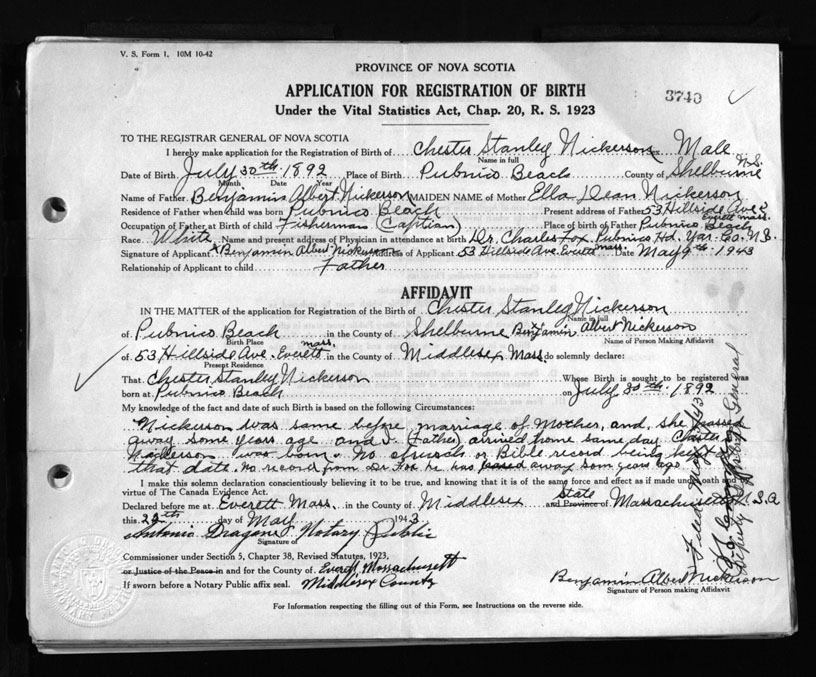 V. S. Form 1. 10M 10-42
PROVINCE OF NOVA SCOTIA
APPLICATION FOR REGISTRATION OF BIRTH
3740
Under the Vital Statistics Act, Chap. 20, R. S. 1923
TO THE REGISTRAR GENERAL OF NOVA SCOTIA
I hereby make application for the Registration of Birth of Chester Stanley Nickerson Male
Name in full
N.S.
Date of Birth July 30th 1892 Place of Birth Pubnico Beach County of Shelburne
Month Date Year
Name of Father Benjamin Albert Nickerson MAIDEN NAME of Mother Ella Dean Nickerson
Residence of Father when child was born Pubnico Beach Present address of Father 53 Hillside Ave
Everett Mass.
Occupation of Father at Birth of child Fisherman (Captian) Place of birth of Father Pubnico Beach
Race White Name and present address of Physician in attendance at birth Dr. Charles Fox, Pubnico Hd. Yar. Co. N.S.
Signature of Applicant Benjamin Albert Nickerson Address of Applicant 53 Hillside Ave. Everett Mass. Date May 9th 1943
Relationship of Applicant to child Father
AFFIDAVIT
IN THE MATTER of the application for Registration of the Birth of Chester Stanley Nickerson
Name in full
of Pubnico Beach in the County of Shelburne Benjamin Albert Nickerson
Birth Place Name of Person Making Affidavit
of 53 Hillside Ave. Everett Mass. in the County of Middlesex Mass do solemnly declare:
Present Residence
That Chester Stanley Nickerson Whose Birth is sought to be registered was
born at Pubnico Beach on July 30th 1892
My knowledge of the fact and date of such Birth is based on the following Circumstances:
Nickerson was same before marriage of Mother, and she passed
away some years age and I (Father) arrived home same day Chester S.
Nickerson was born. No church or Bible record being kept at
that date. No record from Dr. Fox he has passed away som years ago
I make this solemn declaration conscientiously believing it to be true, and knowing that it is of the same force and effect as if made under oath and
virtue of The Canada Evidence Act.
Declared before me at Everett Mass. in the County of Middlesex and Province State of Massachusetts U.S.A
this 28th day of May 1943
Antonio Dragone Notary Public
Signature of
Commissioner under Section 5, Chapter 38, Revised Statutes, 1923,
or Justice of the Peace in and for the County of Everett Massachusett
If sworn before a Notary Public affix seal. Middlesex County
Benjamin Albert Nickerson
Signature of Person making Affidavit
For Information respecting the filling out of this Form, see Instructions on the reverse side.
Deputy Registrar General